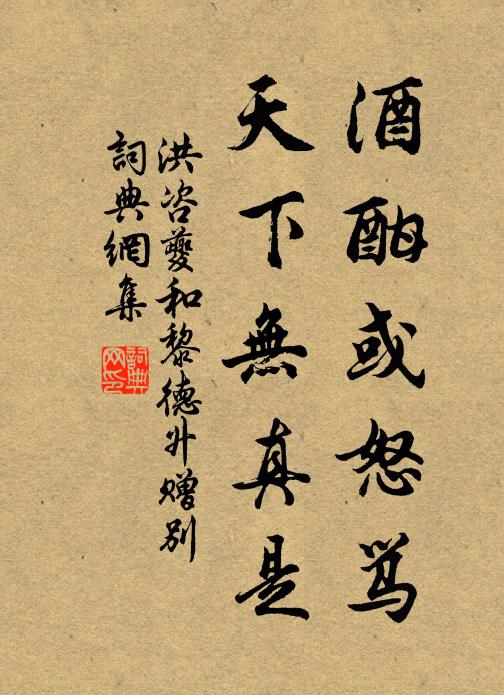 酒酣或怒骂
天下無真是
洪咨夔和黎德升贈别
詞典網集
詞典
网印